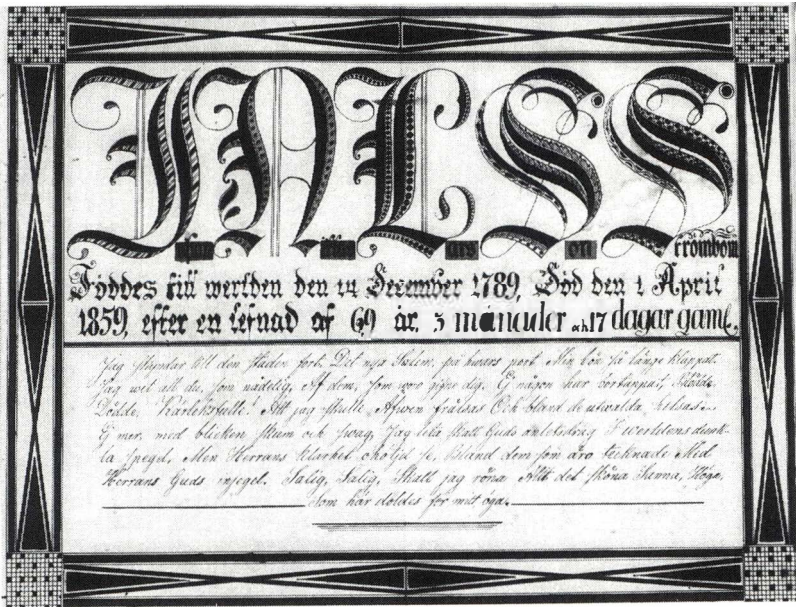 JNLSS
ars on trömbom
Föddes till werlden den 14 December 1789, Död den 1 April
1859, efter en lefnad af 69 år, 3 månader och 17 dagar gaml.
Jag skyndar till den staden fort, Det nya Salem, på hwars port Min bön så länge klappat.
Jag wet att du, som nådelig, Af dem, som woro gifne dig, Ej någon har borttappat,
Dödde, Kärleksfulle! Att jag skulle, Afwen frälsas Och bland de utwalda helsas.
Ej mer, med blicken skum och swag, Jag lita skall Guds anletsdrag I werldens dunk-
la spegel, Men Herrans klarhet se, Bland dem som äro tecknade Med
Herrans Guds insegel. Salig, Salig, Skall jag röna Allt det sköna Sanna, Höga,
Som här doldes för mitt öga.